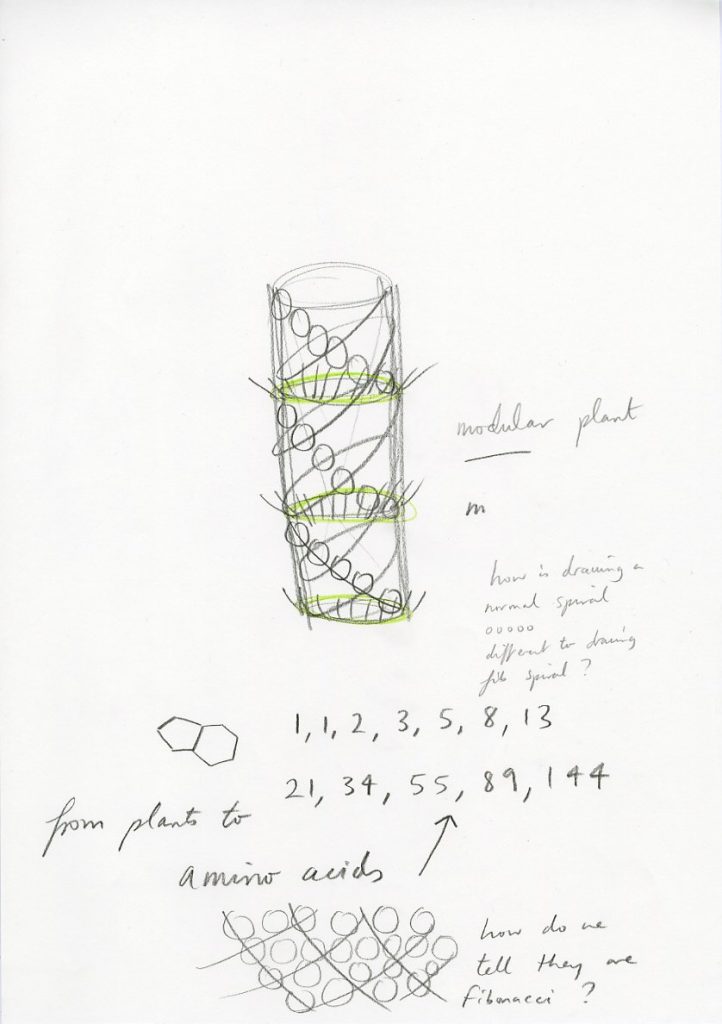 modular plant
m
how is drawing a
normal spiral
ooooo
different to drawing
fib spiral?
1, 1, 2, 3, 5, 8, 13
21, 34, 55, 89, 144
from plants to
amino acids
how do we
tell they are
Fibonacci?